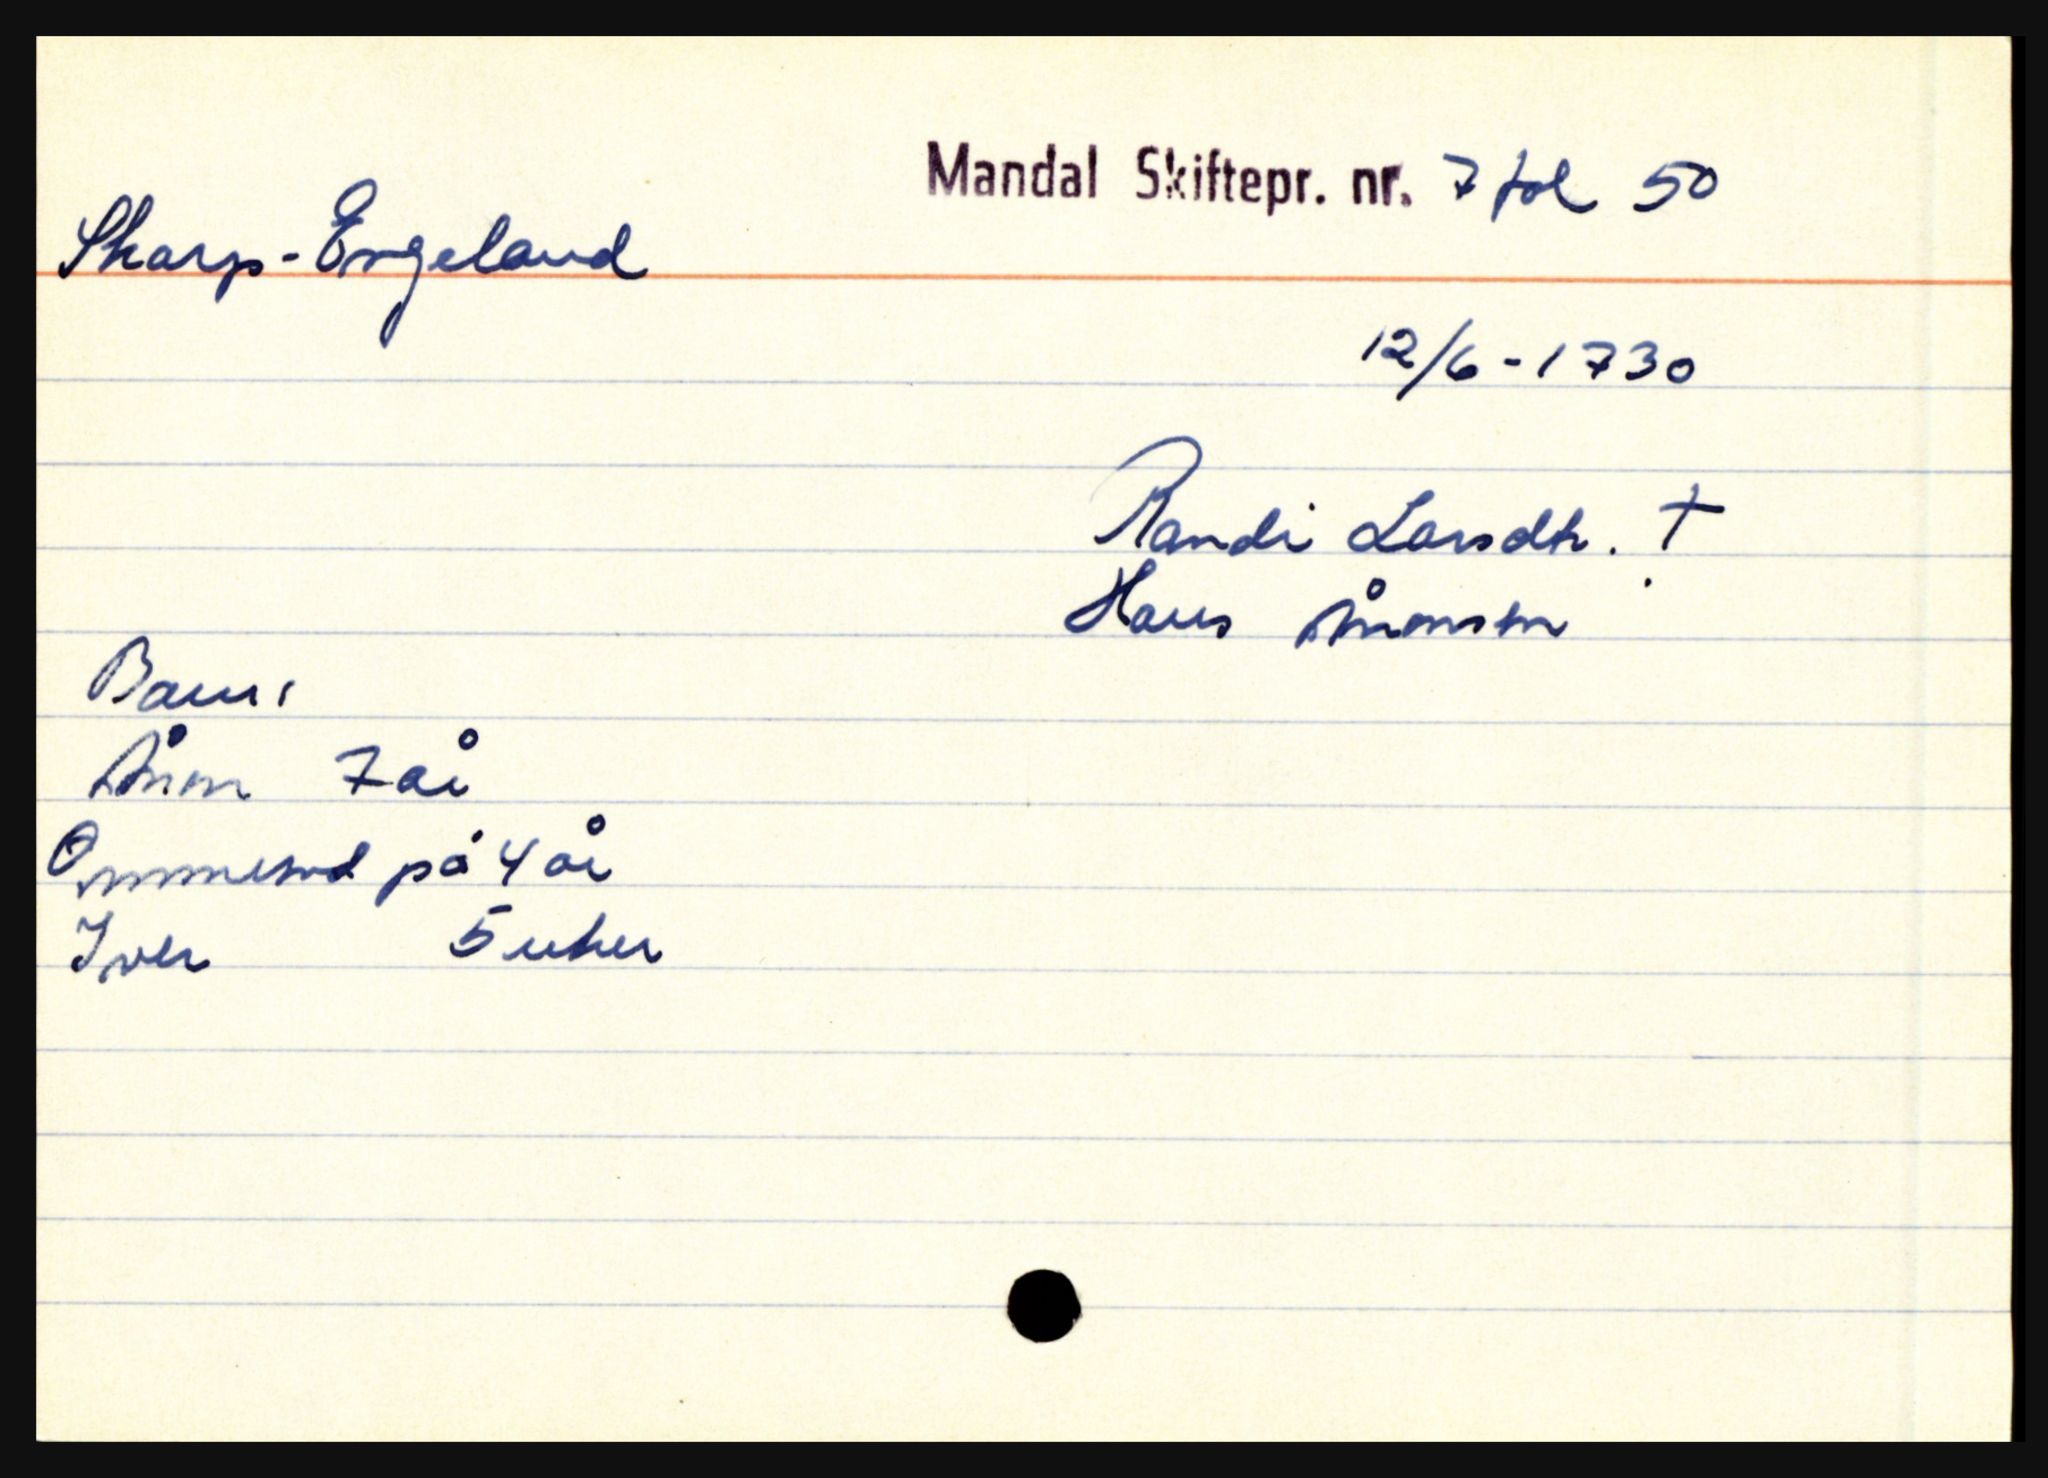 Mandal Skiftepr. nr. 7 fol 50
Skarp-Engeland
12/6-1730
Randi Larsdtr. †
Hans Åmonsen
Barn:
Åmon 7 år
Ommund på 4 år
Iver 5 uker